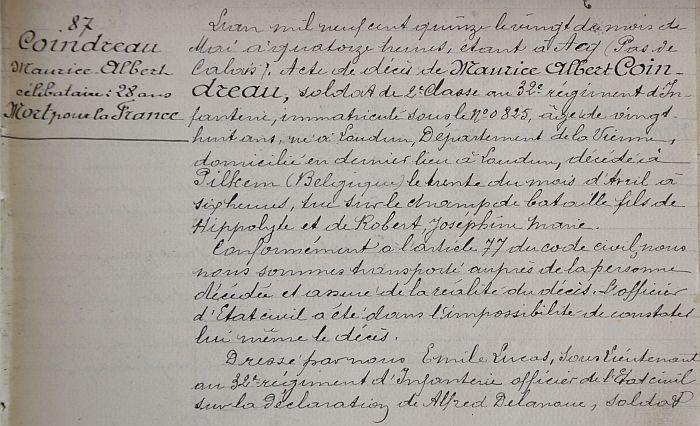 87
Coindreau
Maurice Albert
célibataire: 28 ans
Mort pour la France
L'an mil neuf cent quinze le vingt du mois de
Mai à quatorze heures, étant à Acq (Pas de
Calais). Acte de décès de Maurice Albert Coin-
dreau, soldat de 2e Classe au 32e régiment d'In-
fanterie, immatriculé sous le No 0825, âgé de vingt-
huit ans, né à Loudun, Département de la Vienne,
domicilié en dernier lieu à Loudun, décédé à
Pilkem (Belgique) le trente du mois d'Avril à
six heures, tué sur le champ de bataille fils de
Hippolyte et de Robert Joséphine Marie.
Conformément à l'article 77 du code civil, nous
nous sommes transporté auprès de la personne
décédée et assuré de la réalité du décès. L'officier
d'Etat civil a été dans l'impossibilité de constater
lui même le décès.
Dressé par nous Emile Lucas, Sous Lieutenant
au 32e régiment d'Infanterie officier de l'Etat civil
sur la déclaration de Alfred Delanoue, soldat